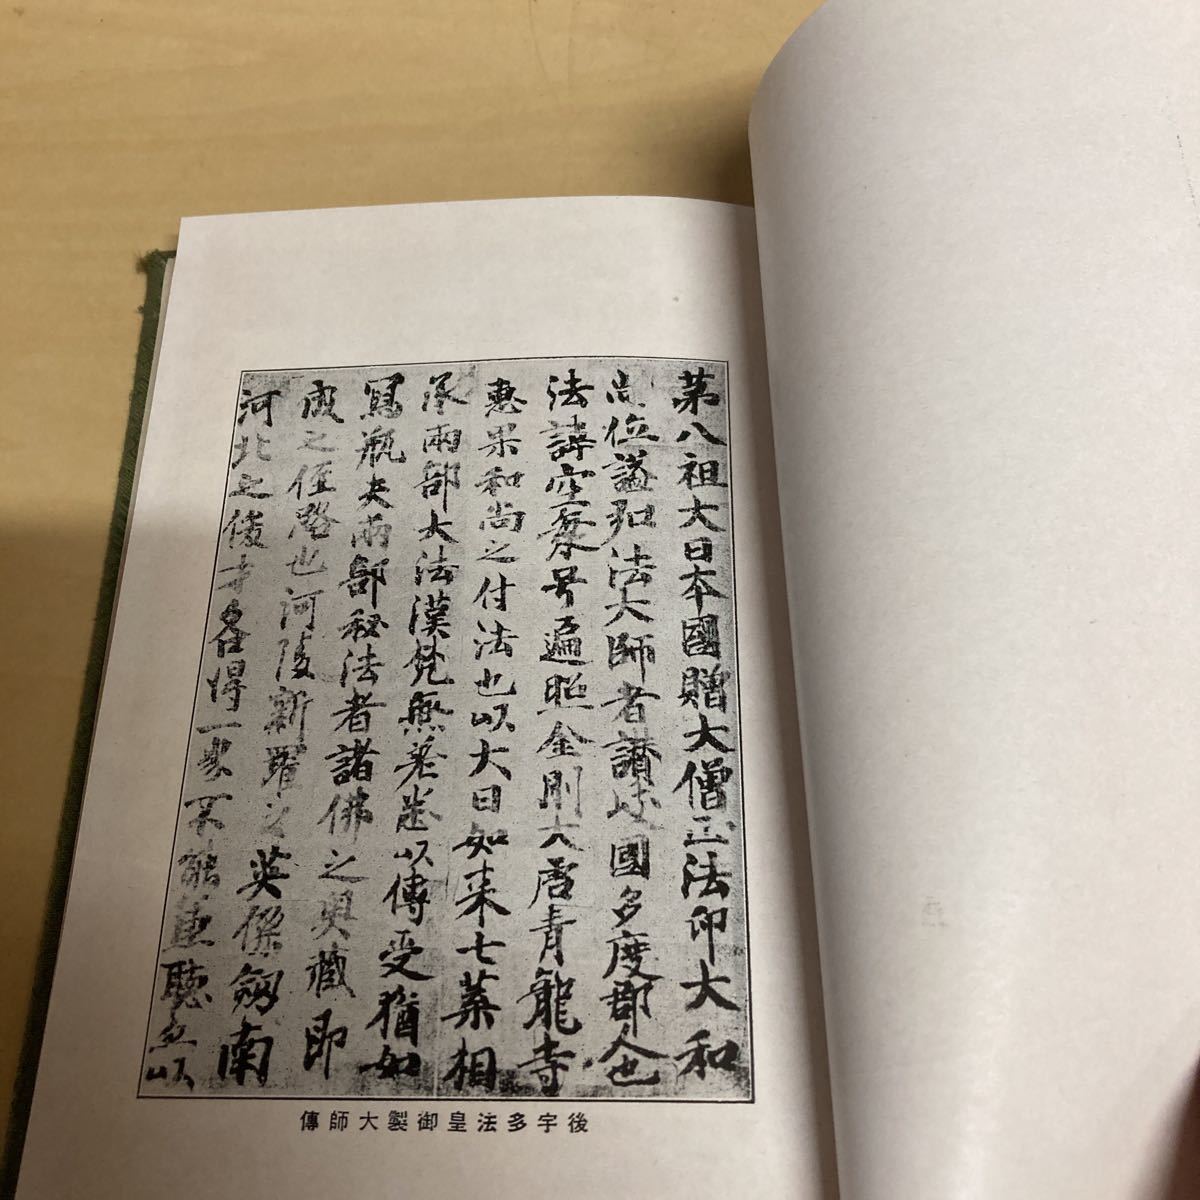 第八祖大日本國贈大僧正法印大和
尚位謚弘法大師者讃岐國多度郡人也
法諱空海号遍照金剛大唐青龍寺
惠果和尚之付法也以大日如来七葉相
承兩部大法漢梵無差悉以傳受猶如
寫瓶夫兩部秘法者諸佛之奥藏即
成之徑路也河陵新羅之英傑劔南
河北之俊才各得一家不能垂聴是以
後宇多法皇御製大師傳